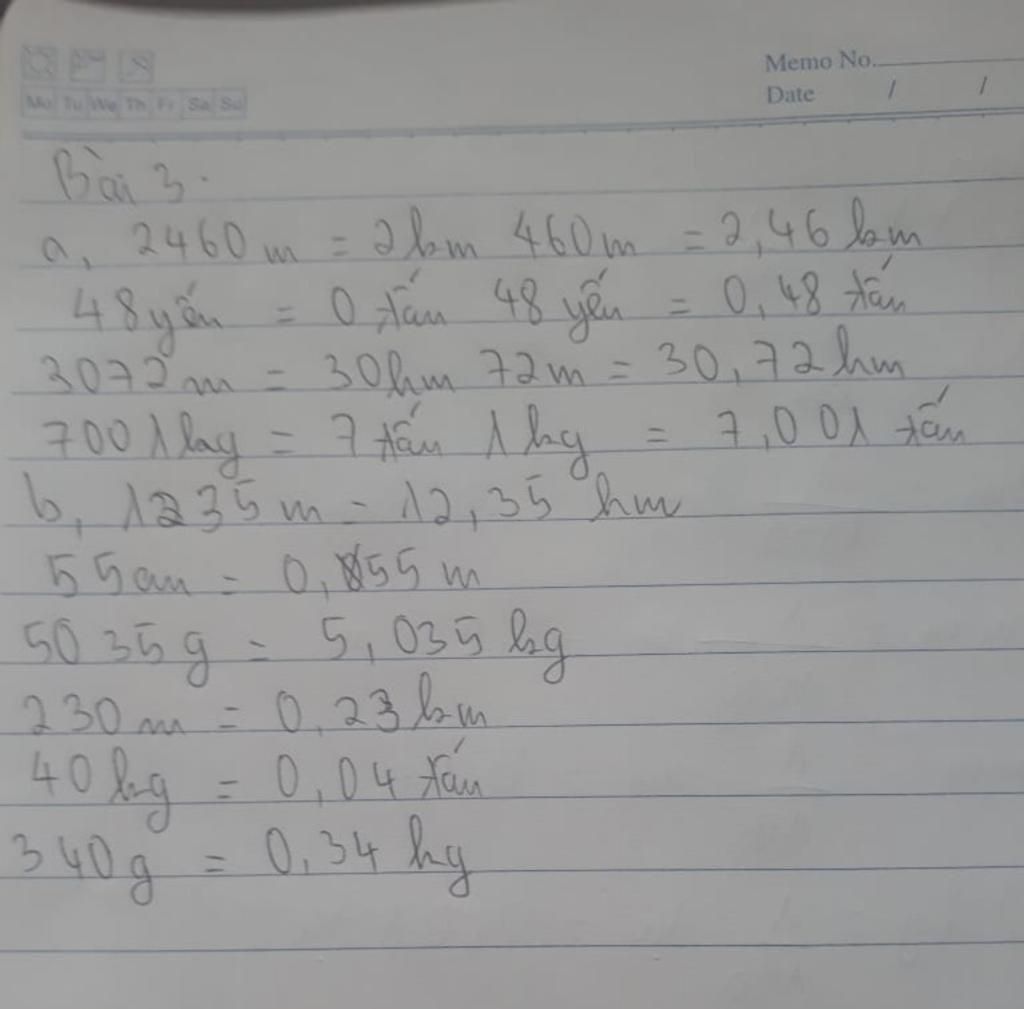 Memo No.
Date / /
Mo Tu We Th Fr Sa Su
Bài 3.
a, 2460m = 2km 460m = 2,46 km
48 yến = 0 tấn 48 yến = 0,48 tấn
3072m = 30hm 72m = 30,72hm
7001kg = 7 tấn 1kg = 7,001 tấn
b, 1235m = 12,35 hm
55cm = 0,55 m
5035g = 5,035 kg
230m = 0,23km
40kg = 0,04 tấn
340g = 0,34 kg